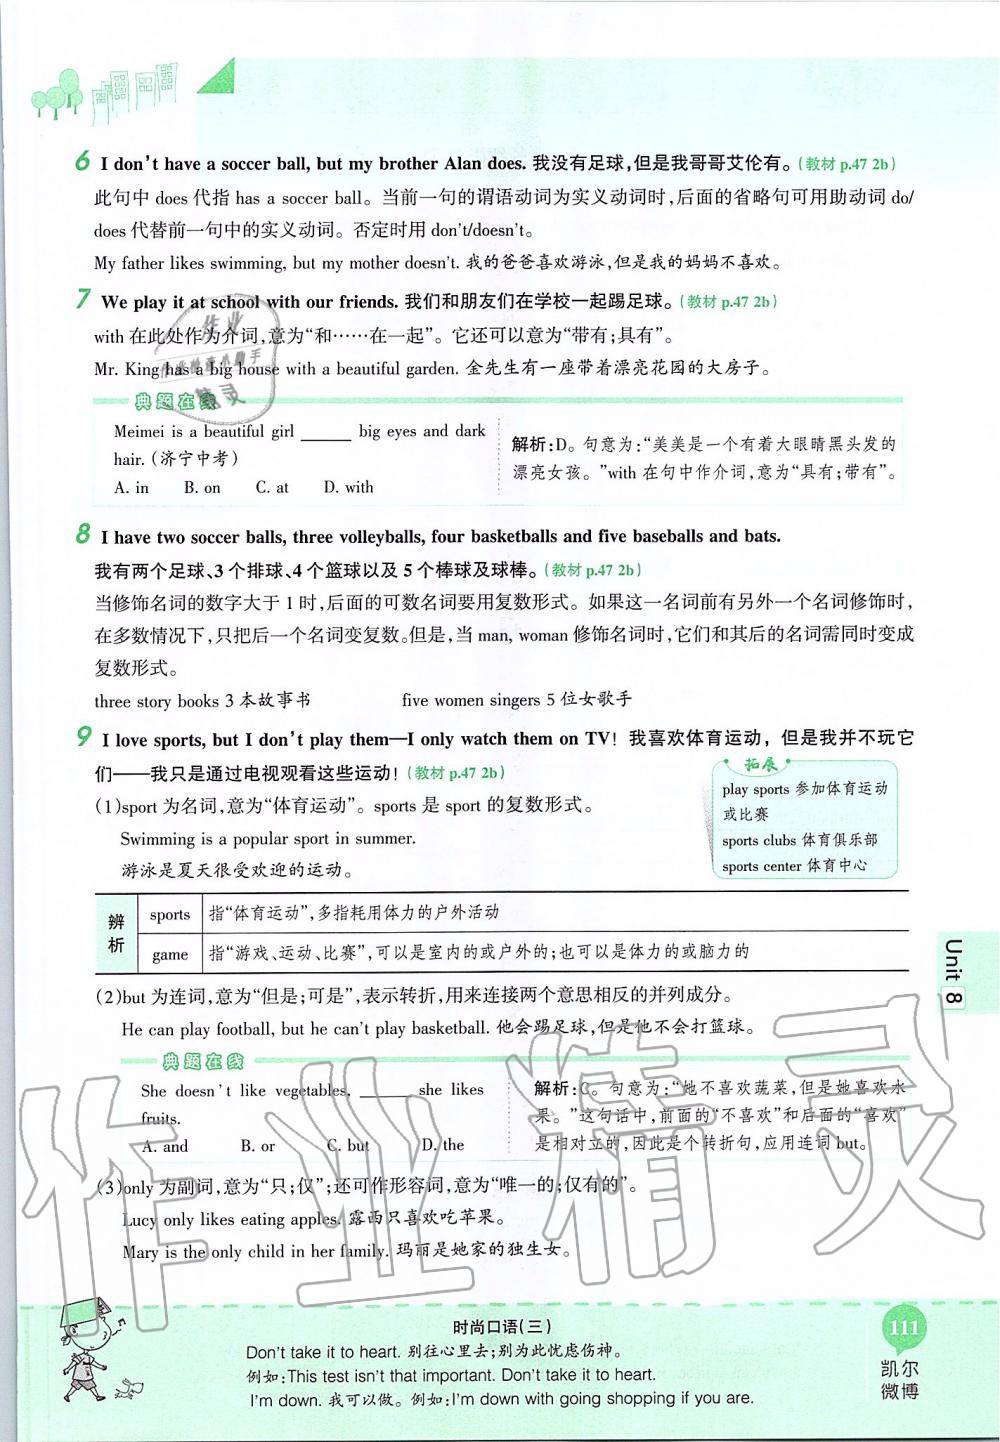 6 I don't have a soccer ball, but my brother Alan does. 我没有足球,但是我哥哥艾伦有。(教材 p.47 2b)
此句中 does 代指 has a soccer ball。当前一句的谓语动词为实义动词时,后面的省略句可用助动词 do/
does 代替前一句中的实义动词。否定时用 don't/doesn't。
My father likes swimming, but my mother doesn't. 我的爸爸喜欢游泳,但是我的妈妈不喜欢。
7 We play it at school with our friends. 我们和朋友们在学校一起踢足球。(教材 p.47 2b)
with 在此处作为介词,意为“和……在一起”。它还可以意为“带有;具有”。
Mr. King has a big house with a beautiful garden. 金先生有一座带着漂亮花园的大房子。
典题在线
Meimei is a beautiful girl ______ big eyes and dark
hair. (济宁中考)
A. in B. on C. at D. with
解析:D。句意为:“美美是一个有着大眼睛黑头发的
漂亮女孩。”with 在句中作介词,意为“具有;带有”。
8 I have two soccer balls, three volleyballs, four basketballs and five baseballs and bats.
我有两个足球、3 个排球、4 个篮球以及 5 个棒球及球棒。(教材 p.47 2b)
当修饰名词的数字大于 1 时,后面的可数名词要用复数形式。如果这一名词前有另外一个名词修饰时,
在多数情况下,只把后一个名词变复数。但是,当 man, woman 修饰名词时,它们和其后的名词需同时变成
复数形式。
three story books 3 本故事书 five women singers 5 位女歌手
9 I love sports, but I don't play them—I only watch them on TV! 我喜欢体育运动，但是我并不玩它
们——我只是通过电视观看这些运动!(教材 p.47 2b)
(1)sport 为名词,意为“体育运动”。sports 是 sport 的复数形式。
Swimming is a popular sport in summer.
游泳是夏天很受欢迎的运动。
拓展
play sports 参加体育运动
或比赛
sports clubs 体育俱乐部
sports center 体育中心
辨析
sports 指“体育运动”,多指耗用体力的户外活动
game 指“游戏、运动、比赛”,可以是室内的或户外的;也可以是体力的或脑力的
(2)but 为连词,意为“但是;可是”,表示转折,用来连接两个意思相反的并列成分。
He can play football, but he can't play basketball. 他会踢足球,但是他不会打篮球。
典题在线
She doesn't like vegetables, ______ she likes
fruits.
A. and B. or C. but D. the
解析:C。句意为:“她不喜欢蔬菜,但是她喜欢水
果。”这句话中,前面的“不喜欢”和后面的“喜欢”
是相对立的,因此是个转折句,应用连词 but。
(3)only 为副词,意为“只;仅”;还可作形容词,意为“唯一的;仅有的”。
Lucy only likes eating apples. 露西只喜欢吃苹果。
Mary is the only child in her family. 玛丽是她家的独生女。
Unit 8
时尚口语(三)
Don't take it to heart. 别往心里去;别为此忧虑伤神。
例如:This test isn't that important. Don't take it to heart.
I'm down. 我可以做。例如:I'm down with going shopping if you are.
111
凯尔
微博
作业精灵